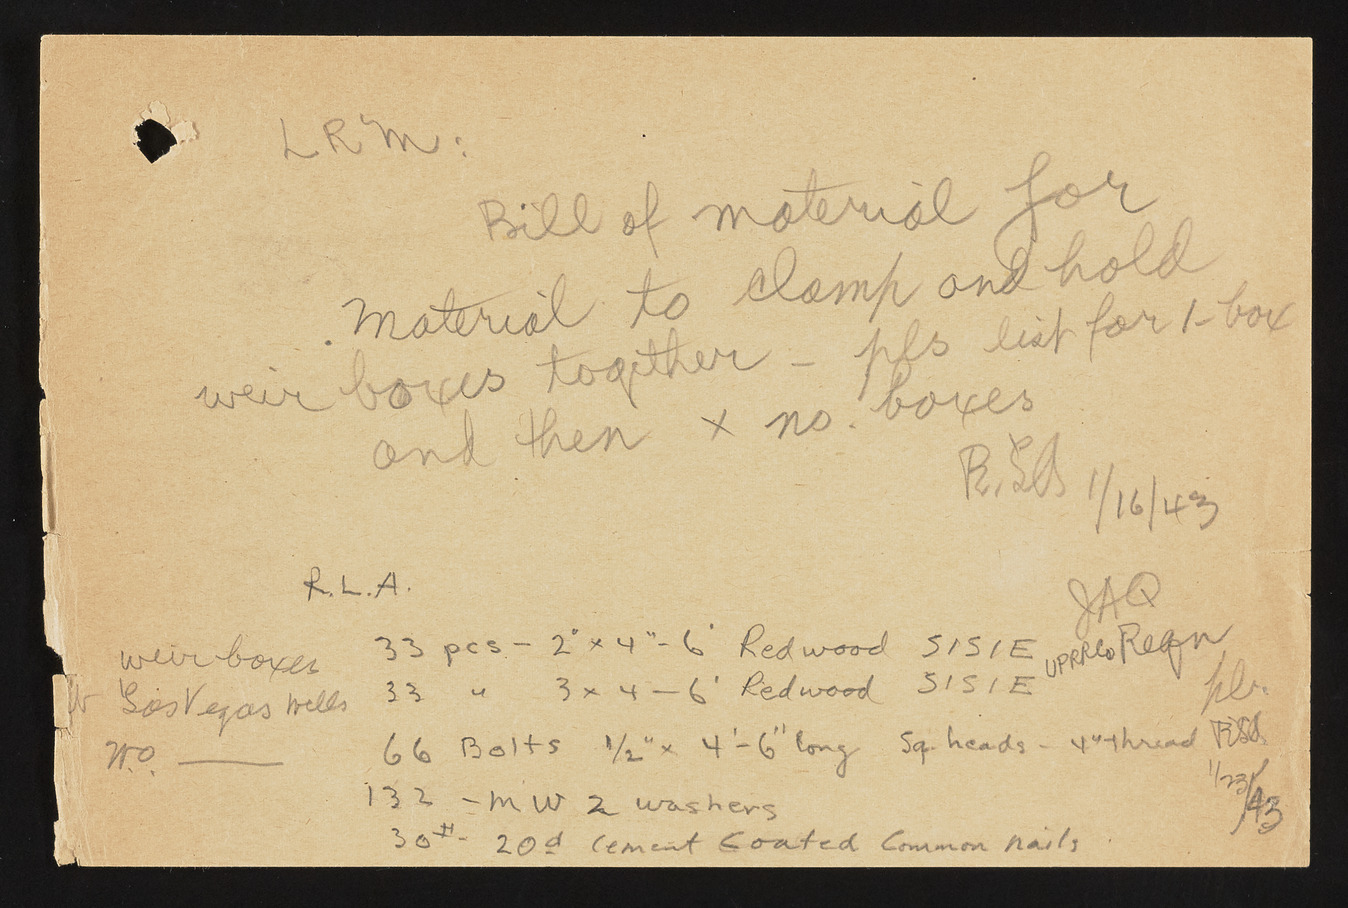 LRM:
Bill of material for
material to clamp and hold
weir boxes together – pls list for 1-box
and then x no. boxes
1/16/43
R.L.A.
JAQ
33 pcs – 2" x 4" – 6' Redwood S1S1E UPRRCo Reqn
weir boxes
33 " 3 x 4 – 6' Redwood S1S1E
Las Vegas Wells
pls.
W.O. ____
66 Bolts 1/2" x 4'-6" long Sq. heads – 4" thread
1/23/43
132 – MW 2 washers
30# – 20d Cement Coated Common nails